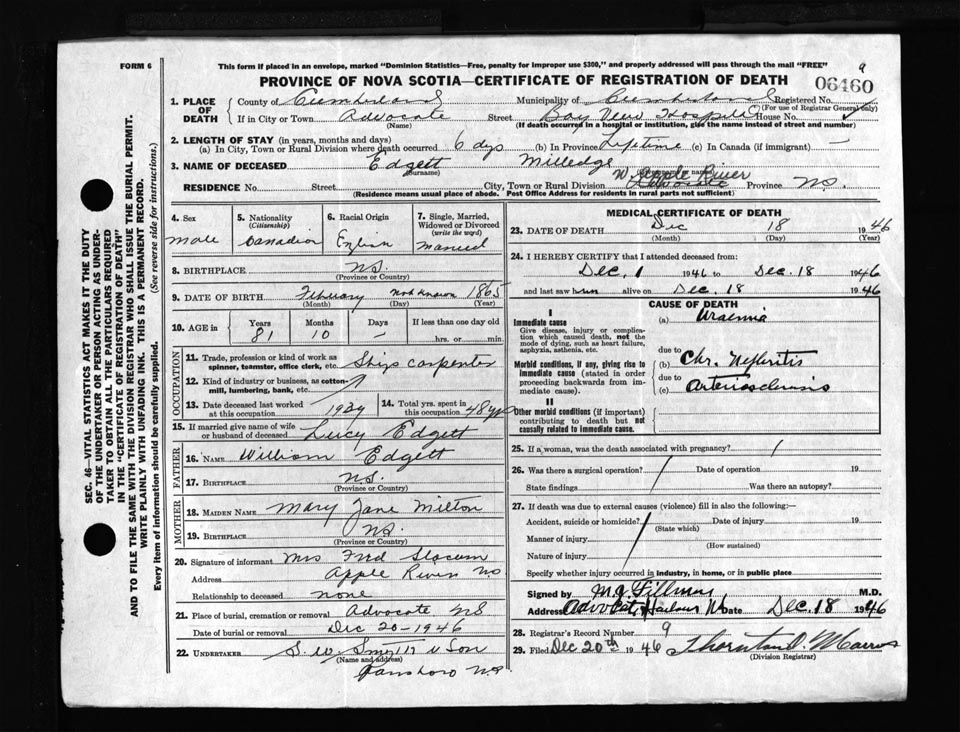 FORM 6
This form if placed in an envelope, marked "Dominion Statistics—Free, penalty for improper use $300," and properly addressed will pass through the mail "FREE"
9
PROVINCE OF NOVA SCOTIA—CERTIFICATE OF REGISTRATION OF DEATH
06460
1. PLACE OF DEATH County of Cumberland Municipality of Cumberland Registered No.
(For use of Registrar General only)
If in City or Town Advocate Street Bay View Hospital House No.
(Name) (If death occurred in a hospital or institution, give the name instead of street and number)
2. LENGTH OF STAY (in years, months and days)
(a) In City, Town or Rural Division where death occurred 6 dys (b) In Province Lifetime (c) In Canada (if immigrant) —
3. NAME OF DECEASED Edgett Milledge
(Surname)
W. Apple River
RESIDENCE No. Street City, Town or Rural Division Province N.S.
(Residence means usual place of abode. Post Office Address for residents in rural parts not sufficient)
4. Sex Male
5. Nationality (Citizenship) Canadian
6. Racial Origin English
7. Single, Married, Widowed or Divorced (write the word) Married
8. BIRTHPLACE N.S.
(Province or Country)
9. DATE OF BIRTH February Not Known 1865
(Month) (Day) (Year)
10. AGE in Years Months Days If less than one day old
81 10 — hrs. or min.
OCCUPATION
11. Trade, profession or kind of work as spinner, teamster, office clerk, etc. Ships carpenter
12. Kind of industry or business, as cotton-mill, lumbering, bank, etc.
13. Date deceased last worked at this occupation 1929
14. Total yrs. spent in this occupation 48 yrs
15. If married give name of wife or husband of deceased Lucy Edgett
FATHER
16. NAME William Edgett
17. BIRTHPLACE N.S.
(Province or Country)
MOTHER
18. MAIDEN NAME Mary Jane Milton
19. BIRTHPLACE N.S.
(Province or Country)
20. Signature of informant Mrs Fred Slocum
Address Apple River N.S
Relationship to deceased none
21. Place of burial, cremation or removal Advocate N S
Date of burial or removal Dec 20-1946
22. UNDERTAKER S. W. Smith & Son
(Name and address)
Parrsboro N.S
MEDICAL CERTIFICATE OF DEATH
23. DATE OF DEATH Dec 18 1946
(Month) (Day) (Year)
24. I HEREBY CERTIFY that I attended deceased from:
Dec. 1 1946 to Dec. 18 1946
and last saw him alive on Dec. 18 1946
CAUSE OF DEATH
I
Immediate cause (a) Uraemia
Give disease, injury or complication which caused death, not the mode of dying, such as heart failure, asphyxia, asthenia, etc.
due to
(b) Chr. Nephritis
Morbid conditions, if any, giving rise to immediate cause (stated in order proceeding backwards from immediate cause).
due to
(c) Arteriosclerosis
II
Other morbid conditions (if important) contributing to death but not causally related to immediate cause.
25. If a woman, was the death associated with pregnancy?
26. Was there a surgical operation? Date of operation 19
State findings Was there an autopsy?
27. If death was due to external causes (violence) fill in also the following:—
Accident, suicide or homicide? Date of injury 19
(State which)
Manner of injury
(How sustained)
Nature of injury
Specify whether injury occurred in industry, in home, or in public place
Signed by M. J. Fillmore M.D.
Address Advocate Harbour NS Date Dec. 18 1946
28. Registrar's Record Number 9
29. Filed Dec 20th 1946 Thornton D. Morris
(Division Registrar)
SEC. 46—VITAL STATISTICS ACT MAKES IT THE DUTY OF THE UNDERTAKER OR PERSON ACTING AS UNDERTAKER TO OBTAIN ALL THE PARTICULARS REQUIRED IN THE "CERTIFICATE OF REGISTRATION OF DEATH" AND TO FILE THE SAME WITH THE DIVISION REGISTRAR WHO SHALL ISSUE THE BURIAL PERMIT.
WRITE PLAINLY WITH UNFADING INK. THIS IS A PERMANENT RECORD.
Every item of information should be carefully supplied. (See reverse side for instructions.)